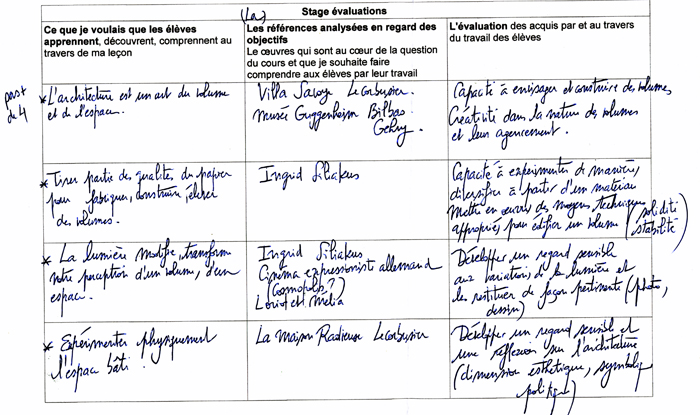 (La)
Stage évaluations
Ce que je voulais que les élèves
apprennent, découvrent, comprennent au
travers de ma leçon
Les références analysées en regard des
objectifs
Le œuvres qui sont au cœur de la question
du cours et que je souhaite faire
comprendre aux élèves par leur travail
L'évaluation des acquis par et au travers
du travail des élèves
past
de 4
* L'architecture est un art du volume
et de l'espace.
Villa Savoye Le Corbusier.
Musée Guggenheim Bilbao
Gehry.
Capacité à envisager et construire des volumes
Créativité dans la nature des volumes
et leur agencement.
* Tirer partie des qualités du papier
pour fabriquer, construire, élever
des volumes.
Ingrid Siliakus
Capacité à expérimenter de manières
diversifiée à partir d'un matériau
Mettre en œuvre des moyens techniques
appropriés pour édifier un volume (solidité
stabilité)
* La lumière modifie, transforme
notre perception d'un volume, d'un
espace.
Ingrid Siliakus
Cinéma expressionist allemand
(Cosmopolis?)
Loriot et Mélia
Développer un regard sensible
aux variations de la lumière et
les restituer de façon pertinente (photo,
dessin)
* Expérimenter physiquement
l'espac bâti.
La maison Radieuse Le Corbusier
Développer un regard sensible et
une réflexion sur l'architecture
(dimension esthétique, symboliq
politique)